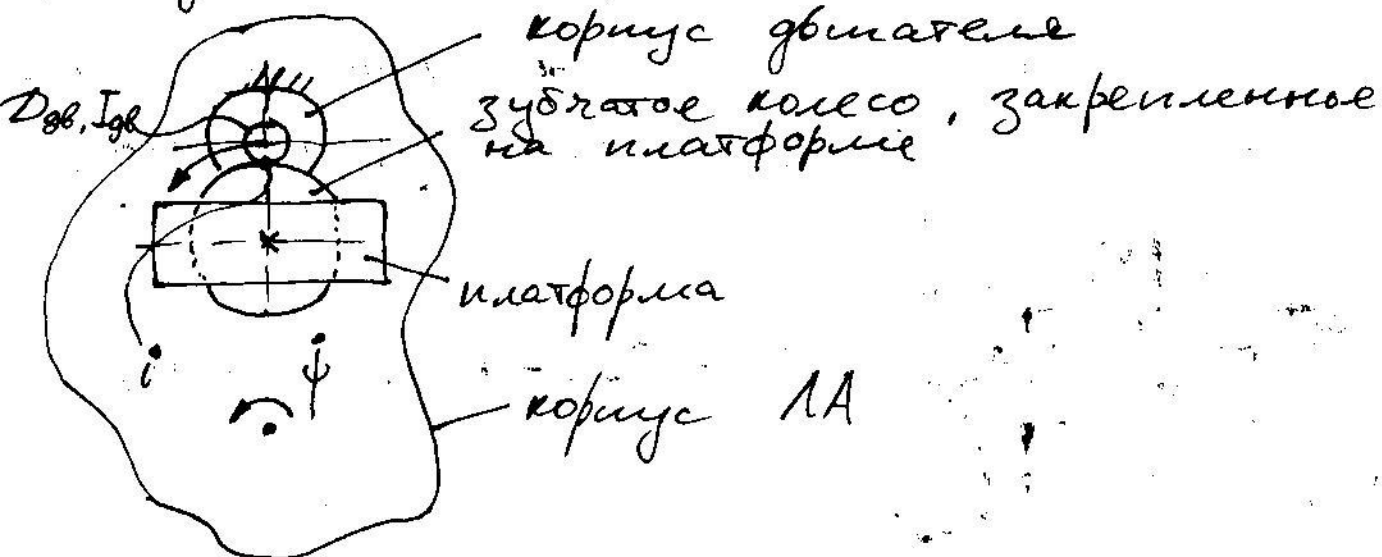 корпус двигателя
Dдв, Iдв
зубчатое колесо, закрепленное
на платформе
платформа
i
ψ̇
корпус ЛА